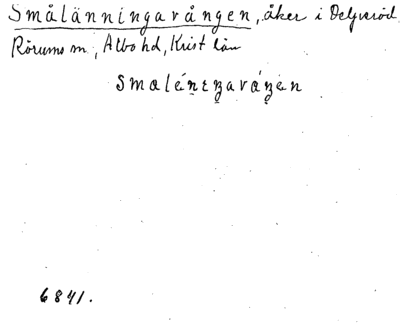 Smålänningavången, åker i Delperöd
Rörums sn, Albo hd, Krist län
Smaléniŋaváŋen
6841.